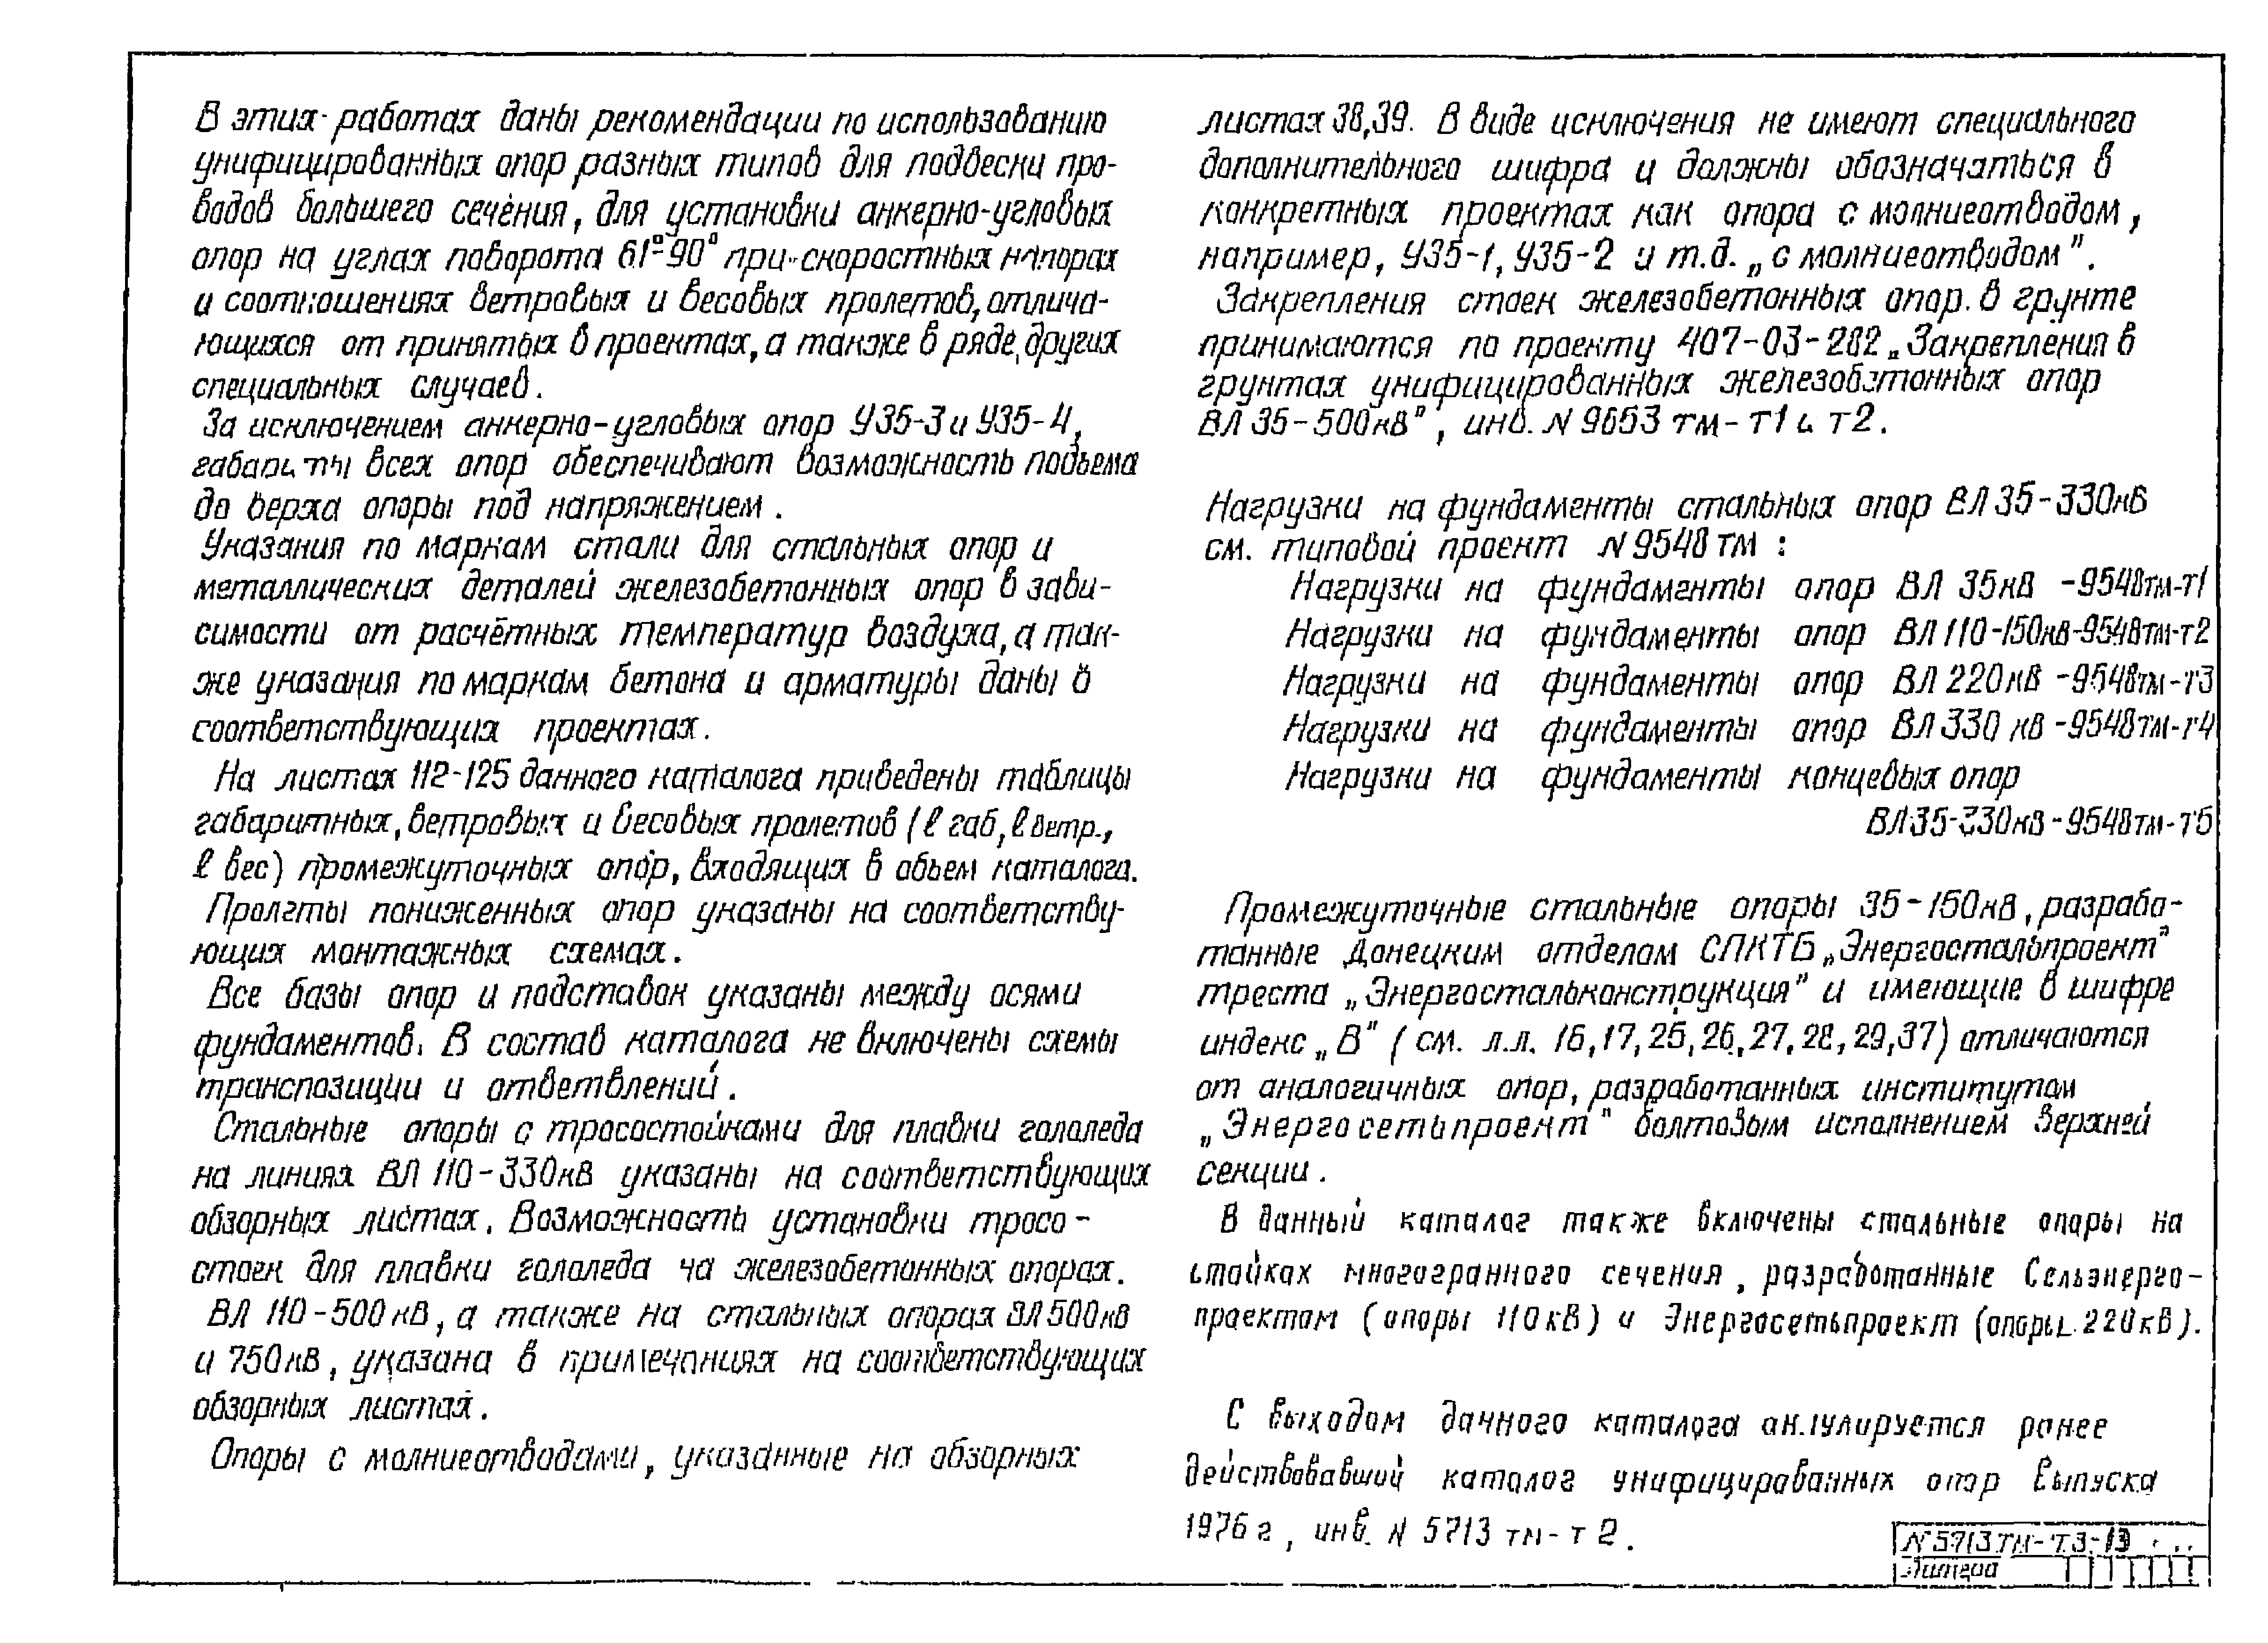 В этих работах даны рекомендации по использованию
унифицированных опор разных типов для подвески про-
водов большего сечения, для установки анкерно-угловых
опор на углах поворота 61°-90° при скоростных напорах
и соотношениях ветровых и весовых пролетов, отлича-
ющихся от принятых в проектах, а также в ряде других
специальных случаев.
За исключением анкерно-угловых опор У35-3 и У35-4,
габариты всех опор обеспечивают возможность подъема
до верха опоры под напряжением.
Указания по маркам стали для стальных опор и
металлических деталей железобетонных опор в зави-
симости от расчётных температур воздуха, а так-
же указания по маркам бетона и арматуры даны в
соответствующих проектах.
На листах 112-125 данного каталога приведены таблицы
габаритных, ветровых и весовых пролетов (ℓ габ, ℓ ветр.,
ℓ вес) промежуточных опор, входящих в объем каталога.
Пролеты пониженных опор указаны на соответству-
ющих монтажных схемах.
Все базы опор и подставок указаны между осями
фундаментов. В состав каталога не включены схемы
транспозиции и ответвлений.
Стальные опоры с тросостойками для плавки гололеда
на линиях ВЛ 110-330кВ указаны на соответствующих
обзорных листах. Возможность установки тросо-
стоек для плавки гололеда на железобетонных опорах.
ВЛ 110-500 кВ, а также на стальных опорах ВЛ 500 кВ
и 750 кВ, указана в примечаниях на соответствующих
обзорных листах.
Опоры с молниеотводами, указанные на обзорных
листах 38,39. В виде исключения не имеют специального
дополнительного шифра и должны обозначаться в
конкретных проектах как опора с молниеотводом,
например, У35-1, У35-2 и т.д. „с молниеотводом".
Закрепления стоек железобетонных опор в грунте
принимаются по проекту 407-03-282 „Закрепления в
грунтах унифицированных железобетонных опор
ВЛ 35-500кВ", инв. N 9653 тм-т1 и т2.
Нагрузки на фундаменты стальных опор ВЛ 35-330кВ
см. типовой проект N 9548 тм :
Нагрузки на фундаменты опор ВЛ 35кВ -9548тм-т1
Нагрузки на фундаменты опор ВЛ 110-150кВ-9548тм-т2
Нагрузки на фундаменты опор ВЛ 220кВ -9548тм-т3
Нагрузки на фундаменты опор ВЛ 330 кВ -9548тм-т4
Нагрузки на фундаменты концевых опор
ВЛ35-330кВ-9548тм-
Промежуточные стальные опоры 35-150кВ, разрабо-
танные Донецким отделом СПКТБ „Энергостальпроект"
треста „Энергостальконструкция" и имеющие в шифре
индекс „В" ( см. л.л. 16,17,25,26,27,28,29,37) отличаются
от аналогичных опор, разработанных институтом
„Энергосетьпроект" болтовым исполнением верхней
секции.
В данный каталог также включены стальные опоры на
стойках многогранного сечения, разработанные Сельэнерго-
проектом (опоры 110 кВ) и Энергосетьпроект (опоры 220 кВ).
С выходом данного каталога аннулируется ранее
действовавший каталог унифицированных опор выпуска
1976 г, инв. N 5713 тм-т 2.
N 5713 тм-т.3-13
Литера